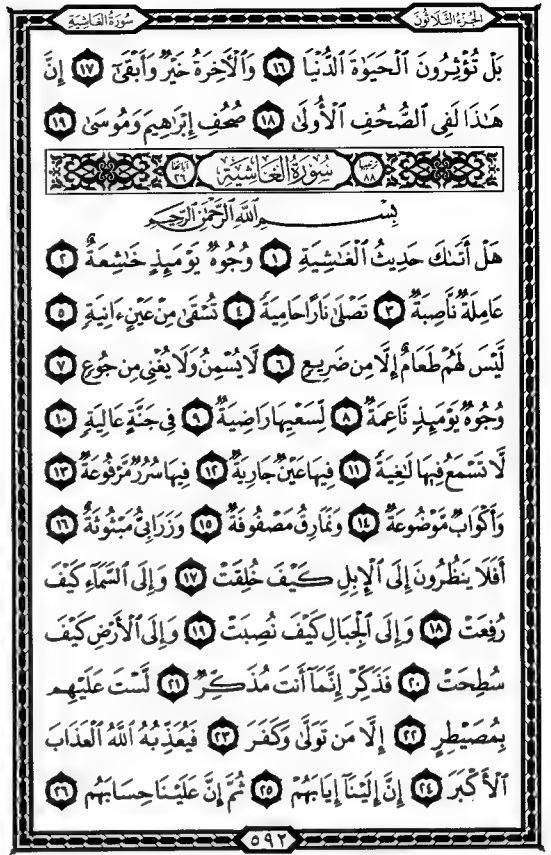 الجزء الثلاثون
سورة الغاشية
بَلْ تُؤْثِرُونَ ٱلْحَيَوٰةَ ٱلدُّنْيَا ١٦ وَٱلْأَخِرَةُ خَيْرٌ وَأَبْقَىٰٓ ١٧ إِنَّ
هَـٰذَا لَفِى ٱلصُّحُفِ ٱلْأُولَىٰ ١٨ صُحُفِ إِبْرَٰهِيمَ وَمُوسَىٰ ١٩
ترتيبها ٨٨ سورة الغاشية آياتها ٢٦
بِسْمِ ٱللَّهِ ٱلرَّحْمَـٰنِ ٱلرَّحِيمِ
هَلْ أَتَىٰكَ حَدِيثُ ٱلْغَـٰشِيَةِ ١ وُجُوهٌ يَوْمَئِذٍ خَـٰشِعَةٌ ٢
عَامِلَةٌ نَّاصِبَةٌ ٣ تَصْلَىٰ نَارًا حَامِيَةً ٤ تُسْقَىٰ مِنْ عَيْنٍ ءَانِيَةٍ ٥
لَّيْسَ لَهُمْ طَعَامٌ إِلَّا مِن ضَرِيعٍ ٦ لَّا يُسْمِنُ وَلَا يُغْنِى مِن جُوعٍ ٧
وُجُوهٌ يَوْمَئِذٍ نَّاعِمَةٌ ٨ لِّسَعْيِهَا رَاضِيَةٌ ٩ فِى جَنَّةٍ عَالِيَةٍ ١٠
لَّا تَسْمَعُ فِيهَا لَـٰغِيَةً ١١ فِيهَا عَيْنٌ جَارِيَةٌ ١٢ فِيهَا سُرُرٌ مَّرْفُوعَةٌ ١٣
وَأَكْوَابٌ مَّوْضُوعَةٌ ١٤ وَنَمَارِقُ مَصْفُوفَةٌ ١٥ وَزَرَابِىُّ مَبْثُوثَةٌ ١٦
أَفَلَا يَنظُرُونَ إِلَى ٱلْإِبِلِ كَيْفَ خُلِقَتْ ١٧ وَإِلَى ٱلسَّمَآءِ كَيْفَ
رُفِعَتْ ١٨ وَإِلَى ٱلْجِبَالِ كَيْفَ نُصِبَتْ ١٩ وَإِلَى ٱلْأَرْضِ كَيْفَ
سُطِحَتْ ٢٠ فَذَكِّرْ إِنَّمَآ أَنتَ مُذَكِّرٌ ٢١ لَّسْتَ عَلَيْهِم
بِمُصَيْطِرٍ ٢٢ إِلَّا مَن تَوَلَّىٰ وَكَفَرَ ٢٣ فَيُعَذِّبُهُ ٱللَّهُ ٱلْعَذَابَ
ٱلْأَكْبَرَ ٢٤ إِنَّ إِلَيْنَآ إِيَابَهُمْ ٢٥ ثُمَّ إِنَّ عَلَيْنَا حِسَابَهُم ٢٦
٥٩٢